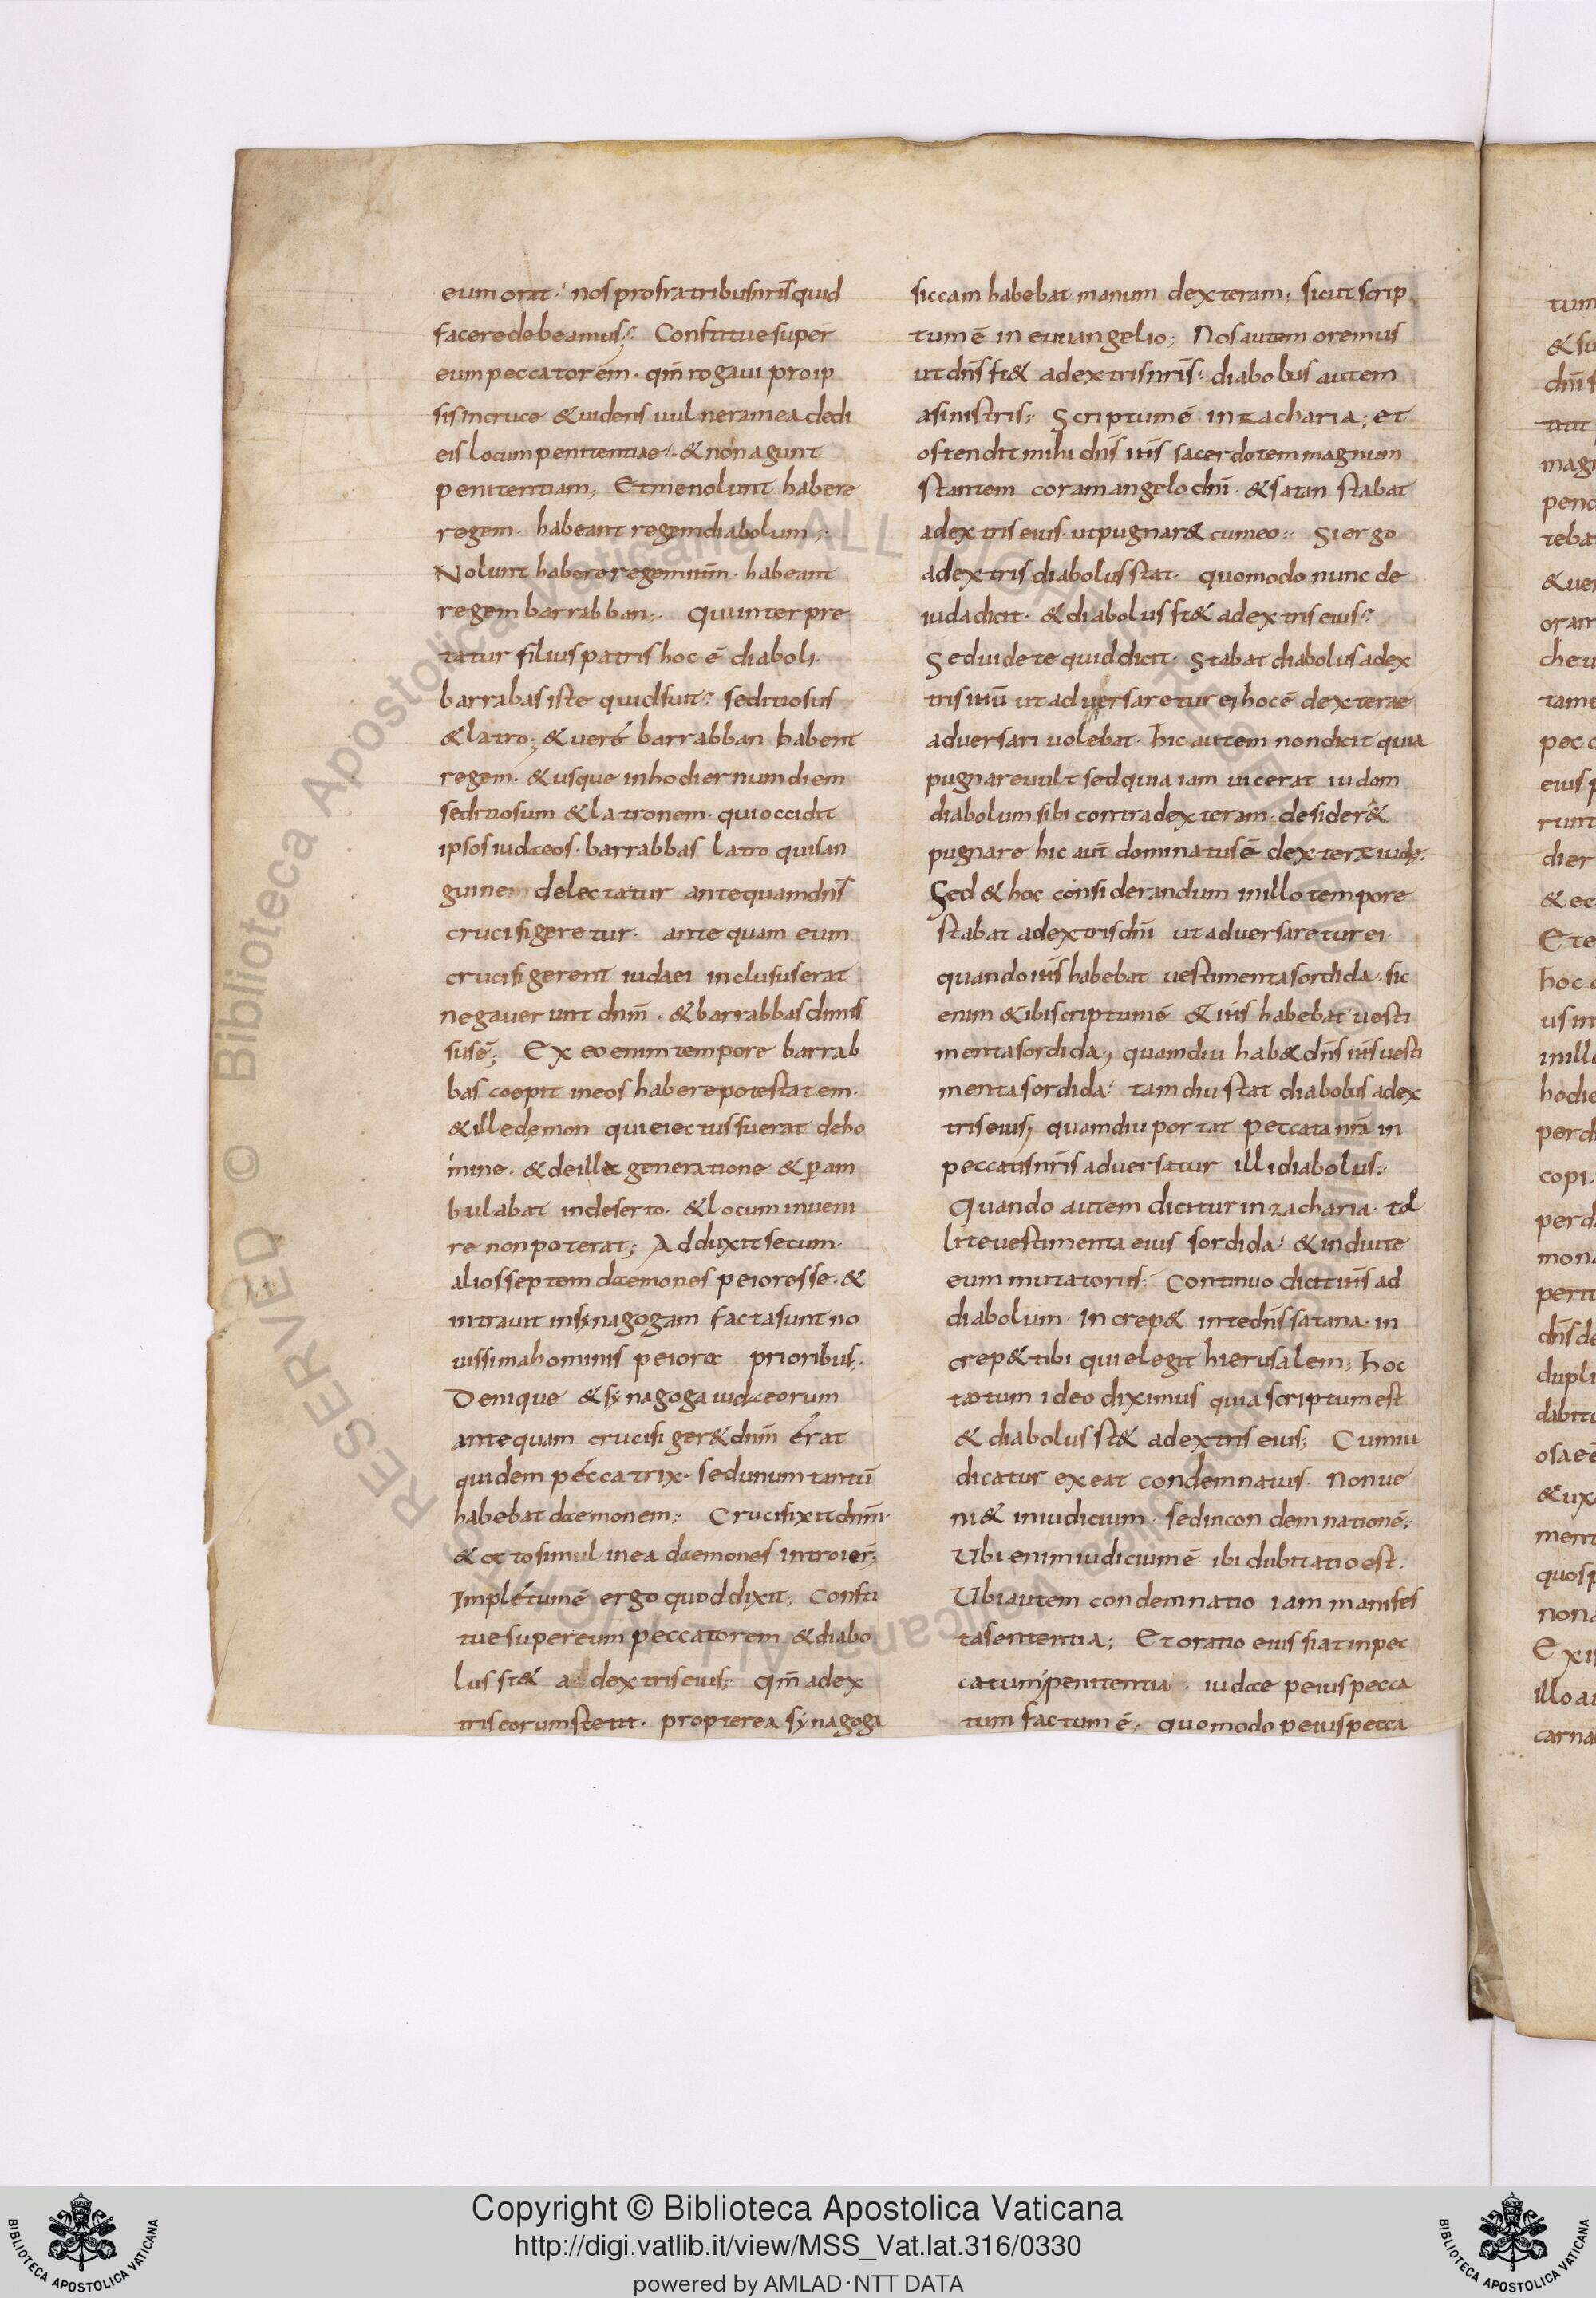 eum orat· nos pro fratribus nr̄is quid
facere debeamus; Constitue super
eum peccatorem· qm̄ rogaui pro ip
sis in cruce & uidens uulnera mea dedi
eis locum penitentiae· & non agunt
penitentiam; Et me nolunt habere
regem· habeant regem diabolum;
Nolunt habere regem ih̄m· habeant
regem barrabban; Qui interpre
tatur filius patris hoc ē diaboli·
barrabas iste quid fuit; seditiosus
& latro; & uere barrabban habent
regem· & usque in hodiernum diem
seditiosum & latronem· qui occidit
ipsos iudaeos· barrabbas latro qui san
guinem delectatur antequam dn̄s
crucifigeretur· ante quam eum
crucifigerent iudaei inclusus erat
negauerunt dn̄m· & barrabbas dimis
sus ē; Ex eo enim tempore barrab
bas coepit in eos habere potestatem·
& ille dęmon qui eiectus fuerat de ho
mine· & de illa generatione & p̄am
bulabat in deserto· & locum inueni
re non poterat; Adduxit secum·
alios septem daemones peiores se· &
intrauit in synagogam facta sunt no
uissima hominis peiora prioribus;
Denique & synagoga iudaeorum
antequam crucifiger& dn̄m erat
quidem peccatrix· sed unum tantū
habebat daemonem; Crucifixit dn̄m·
& octo simul in ea daemones introier̄;
Impletum ē ergo quod dixit; Consti
tue super eum peccatorem & diabo
lus st& a dextris eius; qm̄ a dex
tris eorum stetit· propterea synagoga
siccam habebat manum dexteram; sicut scrip
tum ē in euuangelio; Nos autem oremus
ut dn̄s st& a dextris nr̄is· diabolus autem
a sinistris; Scriptum ē in zacharia; et
ostendit mihi dn̄s ih̄s sacerdotem magnum
stantem coram angelo dn̄i· & satan stabat
a dextris eius· ut pugnar& cum eo; Si ergo
a dextris diabolus stat· quomodo nunc de
iuda dicit· & diabolus st& a dextris eius;
Sed uidete quid dicit· Stabat diabolus a dex
tris ih̄u ut aduersaretur ei hoc ē dexterae
aduersari uolebat· hic autem non dicit quia
pugnare uult sed quia iam uicerat iudam
diabolum sibi contra dexteram· desider&
pugnare hic aut̄ dominatus ē dexterae iudę·
Sed & hoc considerandum in illo tempore
stabat a dextris dn̄i ut aduersaretur ei·
quando ih̄s habebat uestimenta sordida· sic
enim & ibi scriptum ē & ih̄s habebat uesti
menta sordida; quamdiu hab& dn̄s ih̄s uesti
menta sordida· tamdiu stat diabolus a dex
tris eius; quamdiu portat peccata nr̄a in
peccatis nr̄is aduersatur illi diabolus;
Quando autem dicitur in zacharia· tol
lite uestimenta eius sordida· & induite
eum mutatoriis; Continuo dicit ih̄s ad
diabolum· Increp& in te dn̄s satana· in
crep& tibi qui elegit hierusalem; hoc
totum ideo diximus quia scriptum est
& diabolus st& a dextris eius; Cum iu
dicatur exeat condemnatus· Non ue
ni& in iudicium· sed in condemnationē;
Ubi enim iudicium ē· ibi dubitatio est·
Ubi autem condemnatio iam manifes
ta sententia; Et oratio eius fiat in pec
catum; penitentia· iudae peius pecca
tum factum ē; quomodo peius pecca
Copyright © Biblioteca Apostolica Vaticana
http://digi.vatlib.it/view/MSS_Vat.lat.316/0330
powered by AMLAD·NTT DATA
BIBLIOTECA APOSTOLICA VATICANA
BIBLIOTECA APOSTOLICA VATICANA